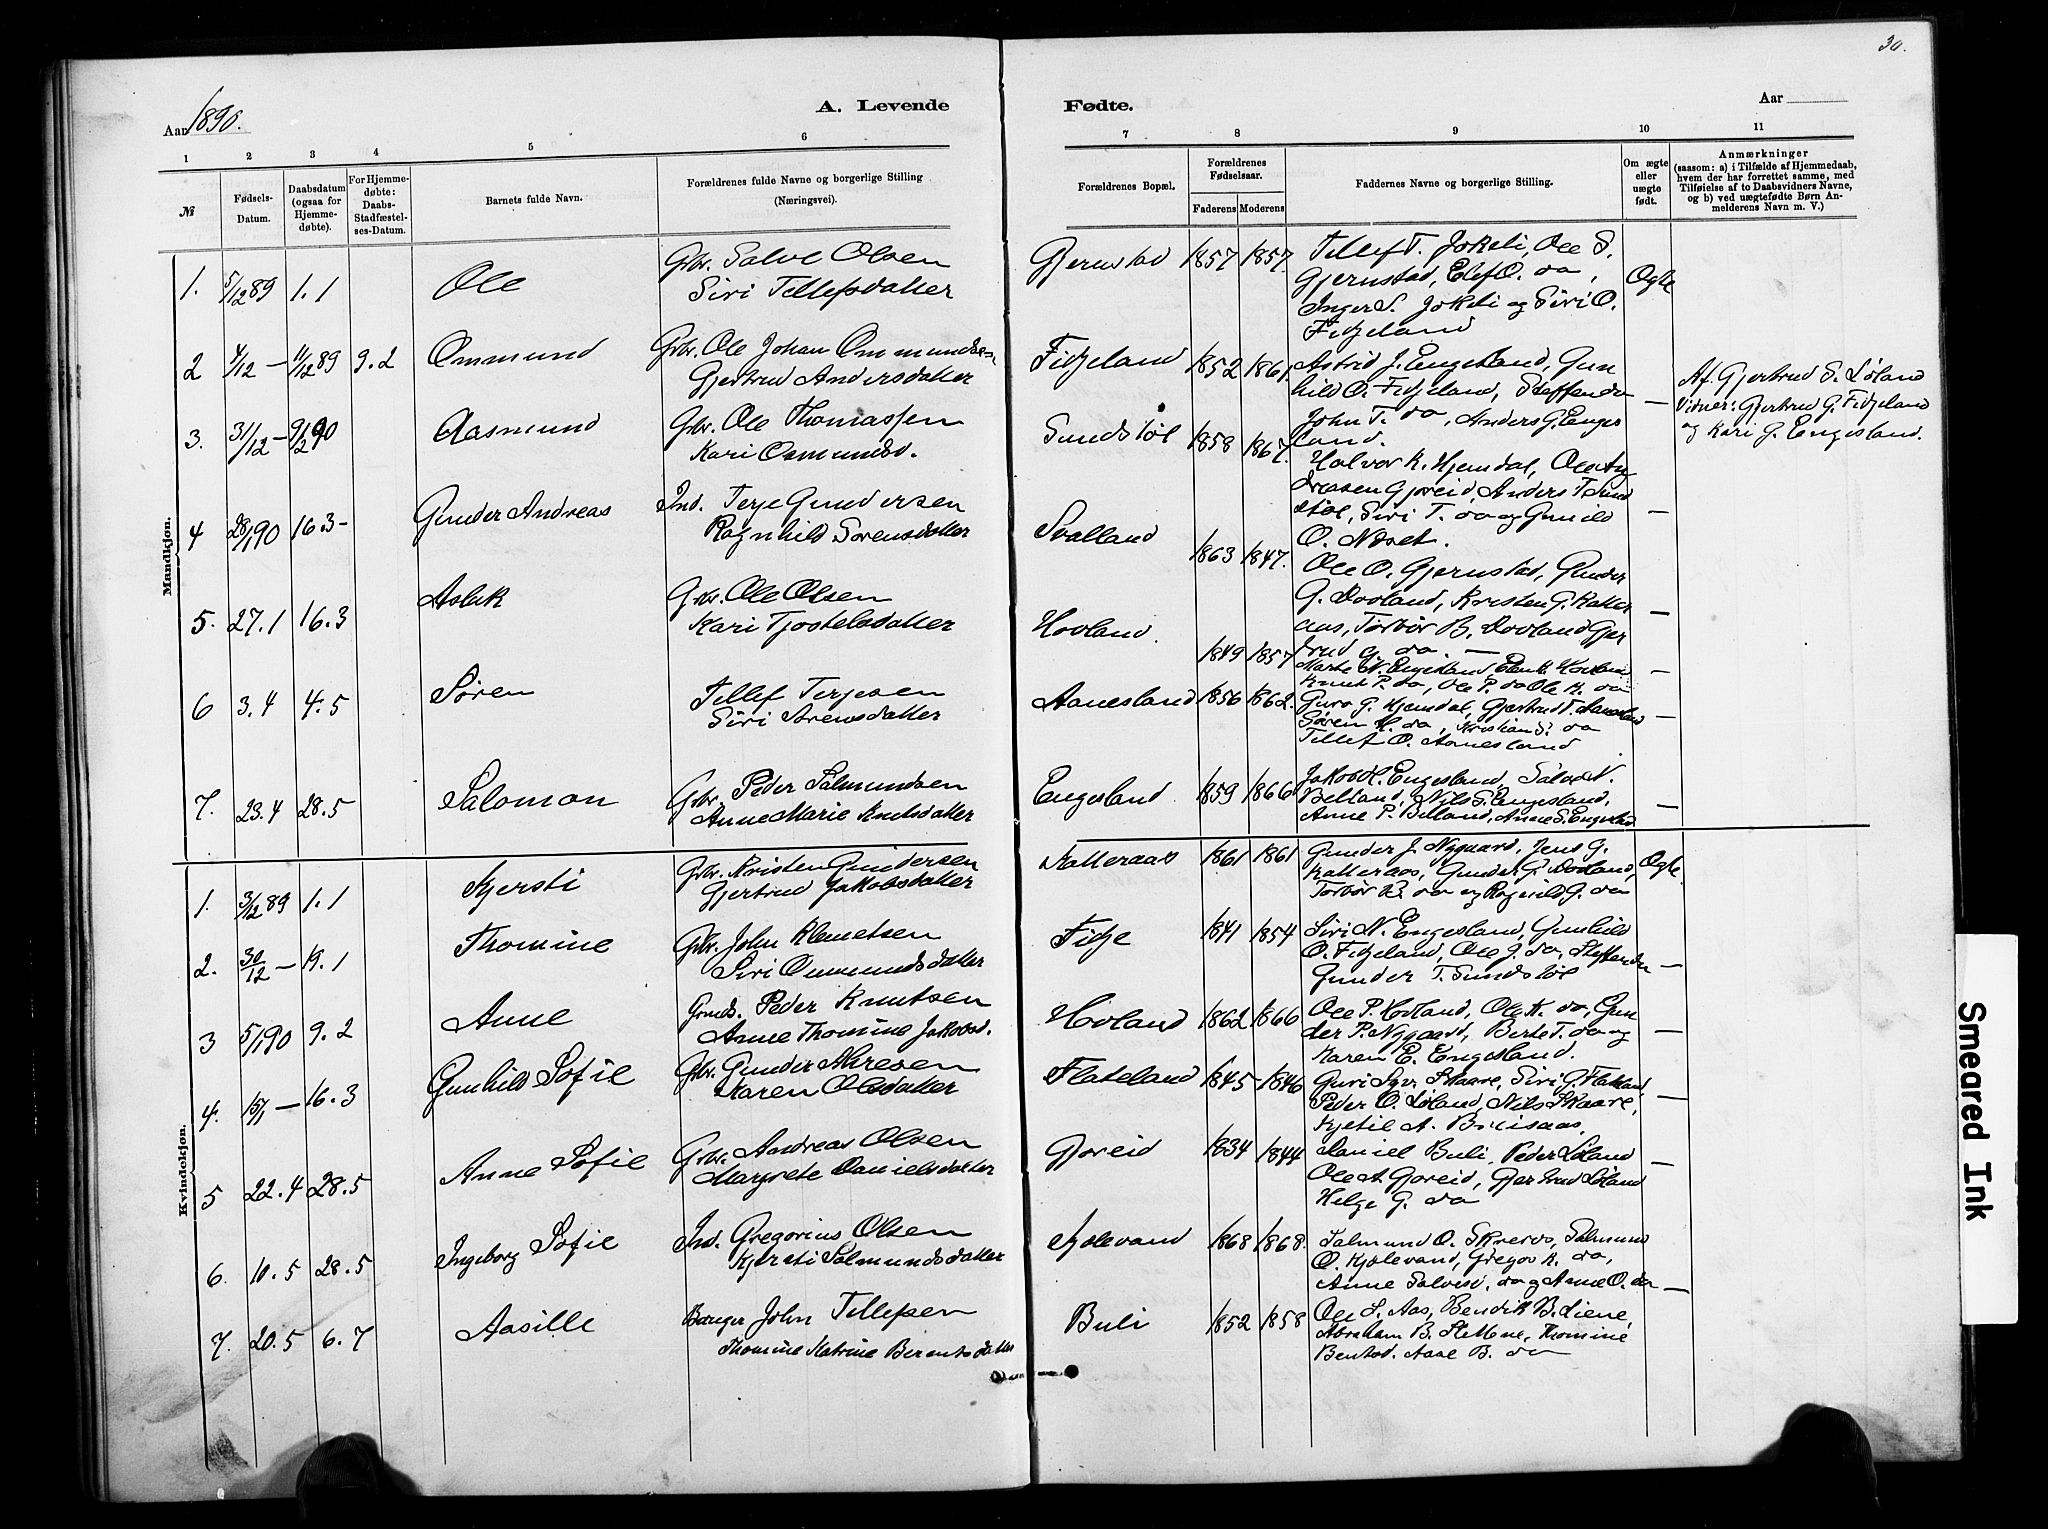 30.
Aar 1890.
A. Levende
Fødte.
Aar
1 2 3 4 5 6 7 8 9 10 11
№
Fødsels-Datum.
Daabsdatum (ogsaa for Hjemmedøbte).
For Hjemmedøbte: Daabs-Stadfæstelses-Datum.
Barnets fulde Navn.
Forældrenes fulde Navne og borgerlige Stilling (Næringsvei).
Forældrenes Bopæl.
Forældrenes Fødselsaar.
Faderens Moderens
Faddernes Navne og borgerlige Stilling.
Om ægte eller uægte født.
Anmærkninger
(saasom: a) i Tilfælde af Hjemmedaab, hvem der har forrettet samme, med Tilføielse af to Daabsvidners Navne, og b) ved uægtefødte Børn Anmelderens Navn m. V.)
Mandkjøn.
1. 5/12 89 1.1 Ole
Grbr. Salve Olsen
Siri Tellefsdatter
Gjernstad 1857 1857.
Tellef T. Jokeli, Ole S.
Gjernstad, Elef O. do,
Inger S. Jokeli og Siri O.
Fidjeland
Ogte
2 4/12 — 11/12 89 9.2 Ommund
Grbr. Ole Johan Ommundsen
Gjertrud Andersdatter
Fidjeland 1852 1861
Astrid J. Engesland, Gun
hild O. Fidjeland, Steffen do
John T. do, Anders G. Enges
land.
—
Af. Gjertrud S. Løland
Vidner: Gjertrud G. Fidjeland
og Kari G. Engesland.
3. 31/12 — 9/2 90 Aasmund
Grbr. Ole Thomassen
Kari Osmundsd.
Sundstøl 1858 1867.
Halvor K. Hjemdal, Ole An
dreasen Gjoreid, Anders T. Sund
støl, Siri T. do og Gunild
O. Næset.
—
4 28/1 90 16.3- Gunder Andreas
Ind. Terje Gundersen
Ragnhild Sørensdatter
Svalland 1863 1847.
Ole O. Gjernstad, Gunder
G. Dovland, Kristen G. Katter
aas, Torbør B. Dovland Gjer
trud G. do. —
—
5. 27.1 16.3 Aslak
Grbr. Ole Olsen
Kari Tjostelsdatter
Hovland. 1849 1857
Knut P. do, Ole P. do Ole K. do
—
6 3.4 4.5 Søren
Tellef Terjesen
Siri Sørensdatter
Aanesland 1856 1862.
Guro G. Hjemdal, Gjertrud T. Aanesland
Søren H. do, Kristian S. do
Tellef O. Aanesland
—
7. 23.4 28.5 Salomon
Grbr. Peder Salmundsen
Anne Marie Knutsdatter
Engesland 1859 1866
Jakob H. Engesland, Salve N.
Belland, Nils S. Engesland,
Anne P. Belland, Anne S. Engesland
—
Kvindekjøn.
1. 3/12 89 1.1 Kjersti
Grbr. Kristen Gundersen
Gjertrud Jakobsdatter
Katteraas 1861 1861
Gunder J. Nygaard, Jens G.
Katteraas, Gunder G. Dovland,
Torbør B. do og Ragnild G. do
Ogte.
2. 30/12 — 19.1 Thomine
Grbr. John Klemetsen
Siri Ommundsdatter
Fidje 1841 1854
Siri N. Engesland, Gunhild
O. Fidjeland, Ole J. do, Steffen do
Gunder T. Sundstøl
—
3 5/1 90 9.2 Anne
Grmd. Peder Knutsen
Anne Thomine Jakobsd.
Hovland 1862 1866
Ole P. Hovland, Ole K. do, Gun
der P. Nygaard, Berte T. do og
Karen E. Engesland.
—
4. 15/1 — 16.3 Gunhild Sofie
Grbr. Gunder Akresen
Karen Olsdatter
Flateland 1845- 1846
Skaare, Siri G. Flateland,
Peder O. Løland, Nils Skaare,
Kjetil A.
—
5 22.4 28.5 Anne Sofie
Grbr. Andreas Olsen
Margrete Danielsdatter
Gjoreid 1834 1844
Daniel Buli, Peder Løland
Ole A. Gjoreid, Gjertrud Løland
Helge G. do
—
6. 10.5 28.5 Ingeborg Sofie
Ind. Gregorius Olsen
Kjersti Salmundsdatter
Kjolevand 1868 1868.
Salmund O. Skreros, Salmund
O. Kjolevand, Gregor K. do,
Anne Salvesd. do og Anne O. do
—
7. 20.5 6.7 Aasille
Bruger John Tellefsen
Thomine Katrine Berentsdatter
Buli 1852 1858
Ole S. Aas, Bendik B. Liene,
Abraham B. Slettene, Thomine
Bentsd. Aase B. do
Smeared Ink